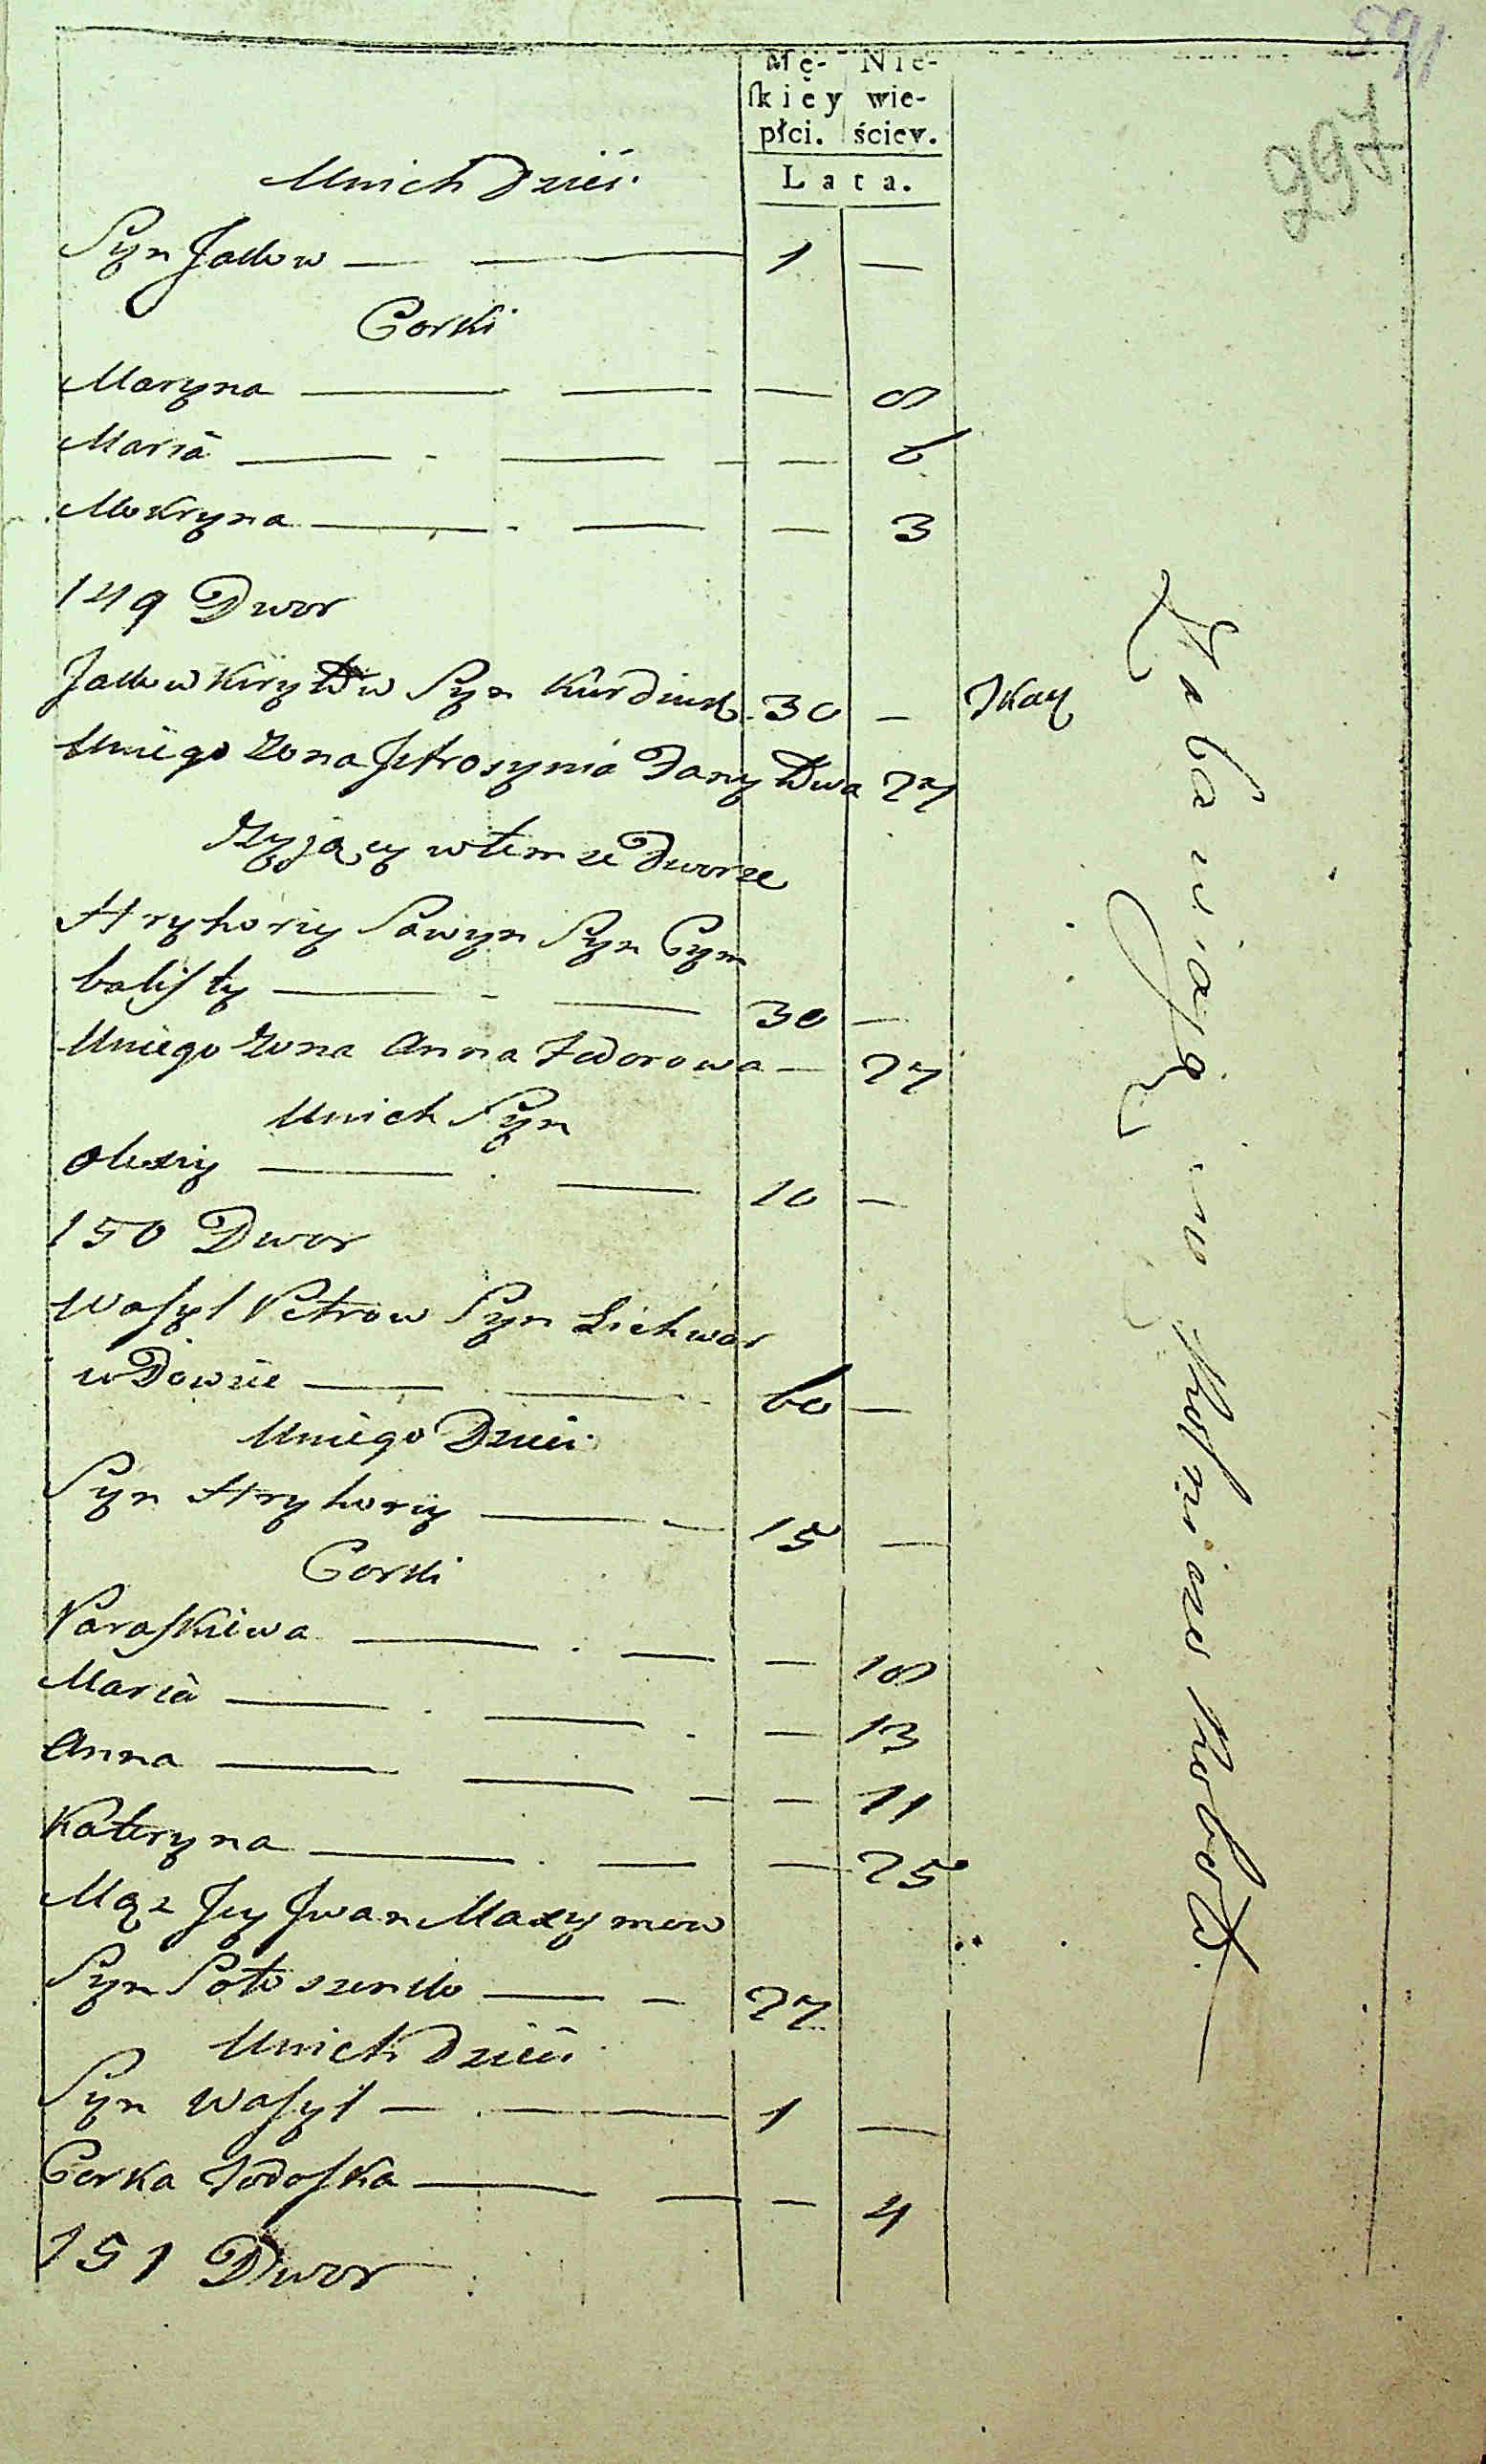 591
297
Mę- Nie-
ſkiey wie-
płci. ściey.
Lata.
Unich Dzieci
Syn Jakow — — 1 —
Corki
Maryna — — — 8
Maria — — — 6
Mokryna — — — 3
149 Dwor
Jakow Kiryłow Syn Kurdiuk 30 — Tkacz
Uniego żona Jefrosynia Daniłowa 27
Zyjący wtemże Dworze
Hryhoriy Sawyn Syn Cym
baliſty — — 30 —
Uniego żona Anna Fedorowa — 27
Unich Syn
Olexiy — — 10 —
150 Dwor
Waſyl Petrow Syn Lichwar
wDowiec — — 60 —
Uniego Dzieci
Syn Hryhoriy — — 15 —
Corki
Paraſkiewa — — — 18
Maria — — — 13
Anna — — — 11
Kateryna — — — 25
Mąż Jey Jwan Maxymow
Syn Potoszenko — — 27
Unich Dzieci
Syn Waſyl — — 1 —
Corka Fodoſka — — — 4
151 Dwor
Zabawiają się Rolnicze Robotą —